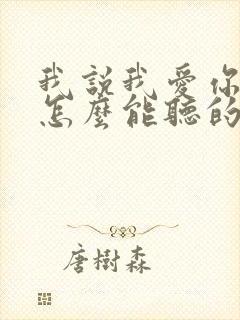 我說我愛你
怎麼能聽的
唐樹森